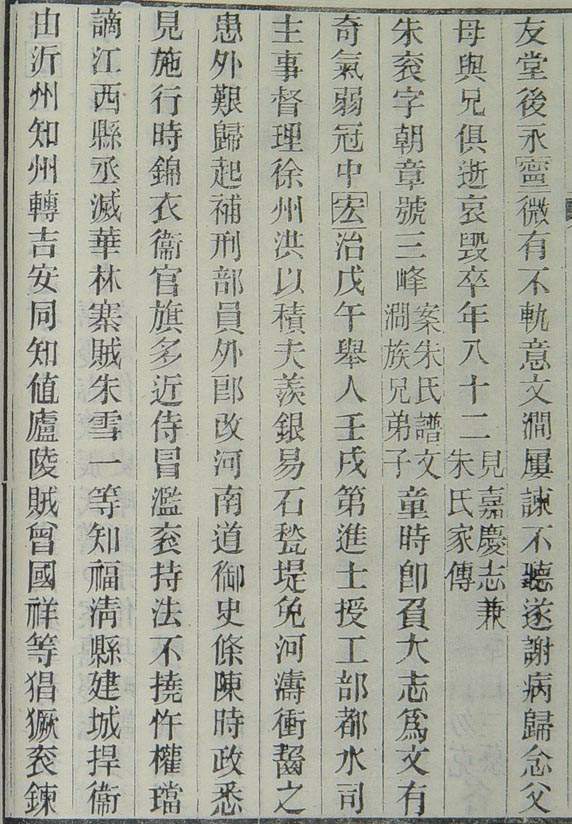 友堂後永寍微有不軌意文澗屢諫不聽遂謝病歸念父
母與兄俱逝哀毁卒年八十二見嘉慶志兼朱氏家傳
朱衮字朝章號三峰案朱氏譜文澗族兄弟子童時卽負大志爲文有
奇氣弱冠中宏治戊午舉人壬戌第進士授工部都水司
主事督理徐州洪以積夫羨銀易石甃堤免河濤衝齧之
患外艱歸起補刑部員外郎改河南道御史條陳時政悉
見施行時錦衣衞官旗多近侍冒濫衮持法不撓忤權璫
謫江西縣丞滅華林寨賊朱雪一等知福淸縣建城捍衞
由沂州知州轉吉安同知値廬陵賊曾國祥等猖獗衮鍊